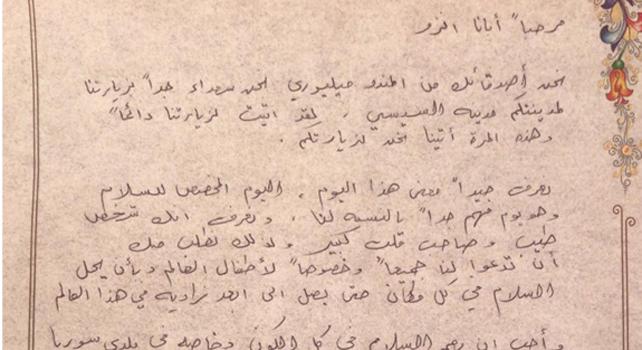 مرحباً أبانا انزو
نحن أصدقائك من الهندو جيليوري نحن سعداء جداً بزيارتنا
لمدينتكم مدينة السيسي ، لقد اتيت لزيارتنا دائماً
وهذه المرة أتينا نحن لزيارتكم .
نعرف جيداً معنى هذا اليوم ، اليوم المخصص للسلام
وهو يوم مهم جداً بالنسبة لنا ، ونعرف انك شخص
طيب وصاحب قلب كبير ولذلك نطلب منك
أن تدعوا لنا جميعاً وخصوصاً لأطفال العالم وبأن يحل
السلام في كل مكان حتى يصل الى ابعد زاوية في هذا العالم
و أحب ان يعم السلام في كل الكون وخاصة في بلدي سوريا